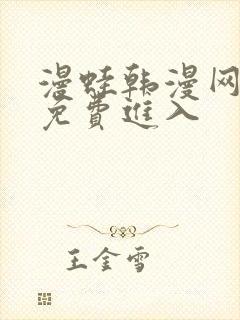 漫蛙韩漫网
免費進入
王金雪